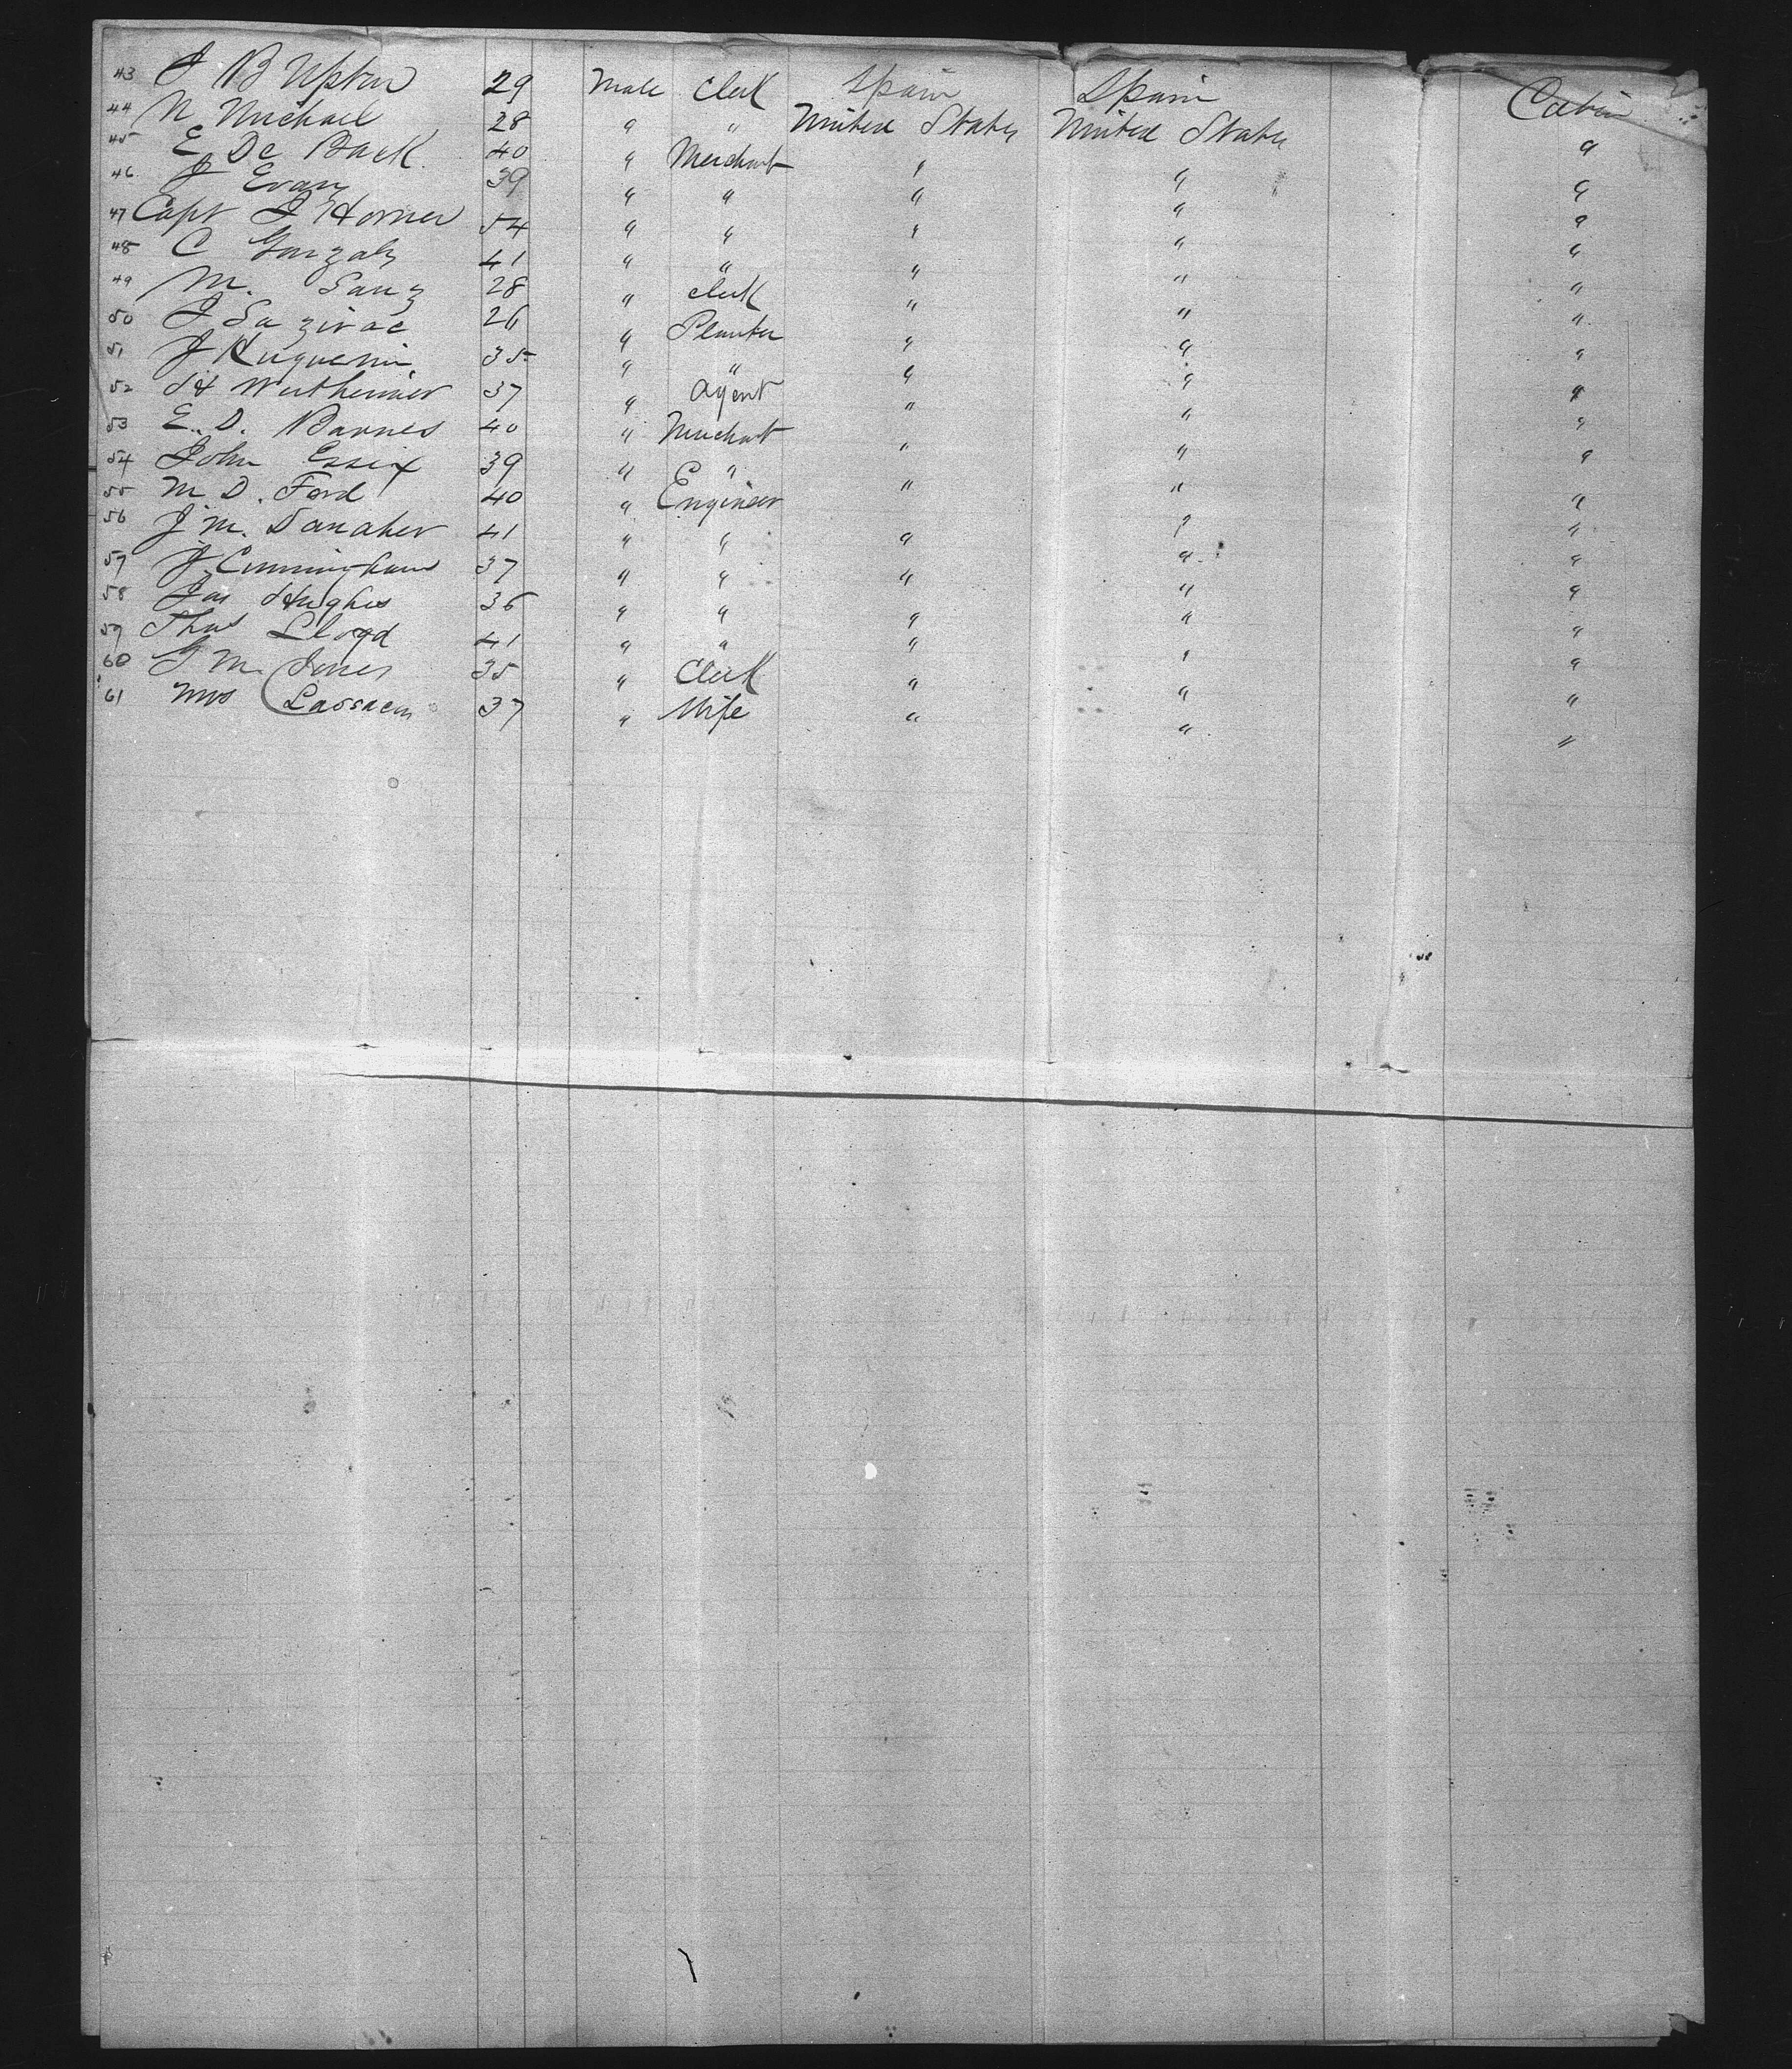 43 J B Upton 29 Male Clerk Spain Spain Cabin
44 N Michael 28 " " United States United States "
45 E De Back 40 " Merchant " " "
46 J Evans 39 " " " " "
47 Capt J Horner 54 " " " " "
48 C Gonzales 41 " " " " "
49 M. Sanz 28 " Clerk " " "
50 J Sazirac 26 " Planter " " "
51 J Huguenin 35 " " " " "
52 H Wertheimer 37 " Agent " " "
53 E. D. Barnes 40 " Merchant " " "
54 John Essex 39 " " " " "
55 M D. Ford 40 " Engineer " "
56 J. M. Danaher 41 " " " " "
57 J. Cunningham 37 " " " " "
58 Jas Hughes 36 " " " " "
59 Thos Lloyd 41 " " " " "
60 J M. Jones 35 " Clerk " " "
61 Mrs 37 " Wife " " "